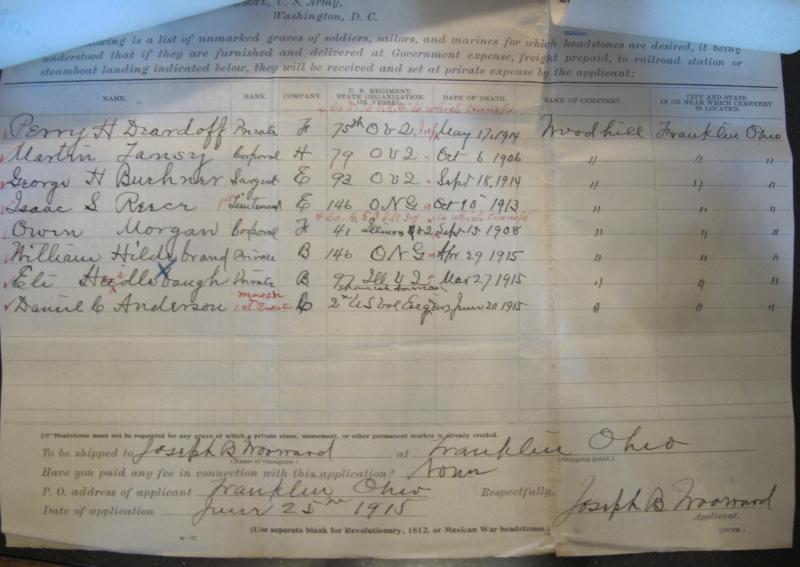 U. S. Army,
Washington, D. C.
is a list of unmarked graves of soldiers, sailors, and marines for which headstones are desired, it being
understood that if they are furnished and delivered at Government expense, freight prepaid, to railroad station or
steamboat landing indicated below, they will be received and set at private expense by the applicant:
NAME. RANK. COMPANY. U. S. REGIMENT, STATE ORGANIZATION, OR VESSEL. DATE OF DEATH. NAME OF CEMETERY. CITY AND STATE IN OR NEAR WHICH CEMETERY IS LOCATED.
which transfd
Perry H Deardoff Private F 75th O V I May 17, 1914 Woodhill Franklin Ohio
Martin Tansy Corporal H 79 O V I Oct 6 1906 " " "
George H Buehner Sargent E 93 O V I Sept 18, 1914 " " "
Isaac S Reece 1st Lieutenant E 146 O N G Oct 10 1913 " " "
which transfd
Owin Morgan Corporal F 41 Sept 15 1908 " " "
William Hildebrand Private B 146 O N G Apr 29 1915 " " "
Eli Private B 97 Ill V I Mar 27 1915 " " "
Spanish American
Daniel C Anderson C 2nd U S Vol Eng June 20 1915 " " "
Headstones must not be requested for any grave at which a private stone, monument, or other permanent marker is already erected.
To be shipped to Joseph B Woodward at Franklin Ohio
(Name of consignee.) (Shipping point.)
Have you paid any fee in connection with this application? None
P. O. address of applicant Franklin Ohio Respectfully, Joseph B Woodward
Applicant.
Date of application June 25th 1915
(OVER.)
(Use separate blank for Revolutionary, 1812, or Mexican War headstones.)